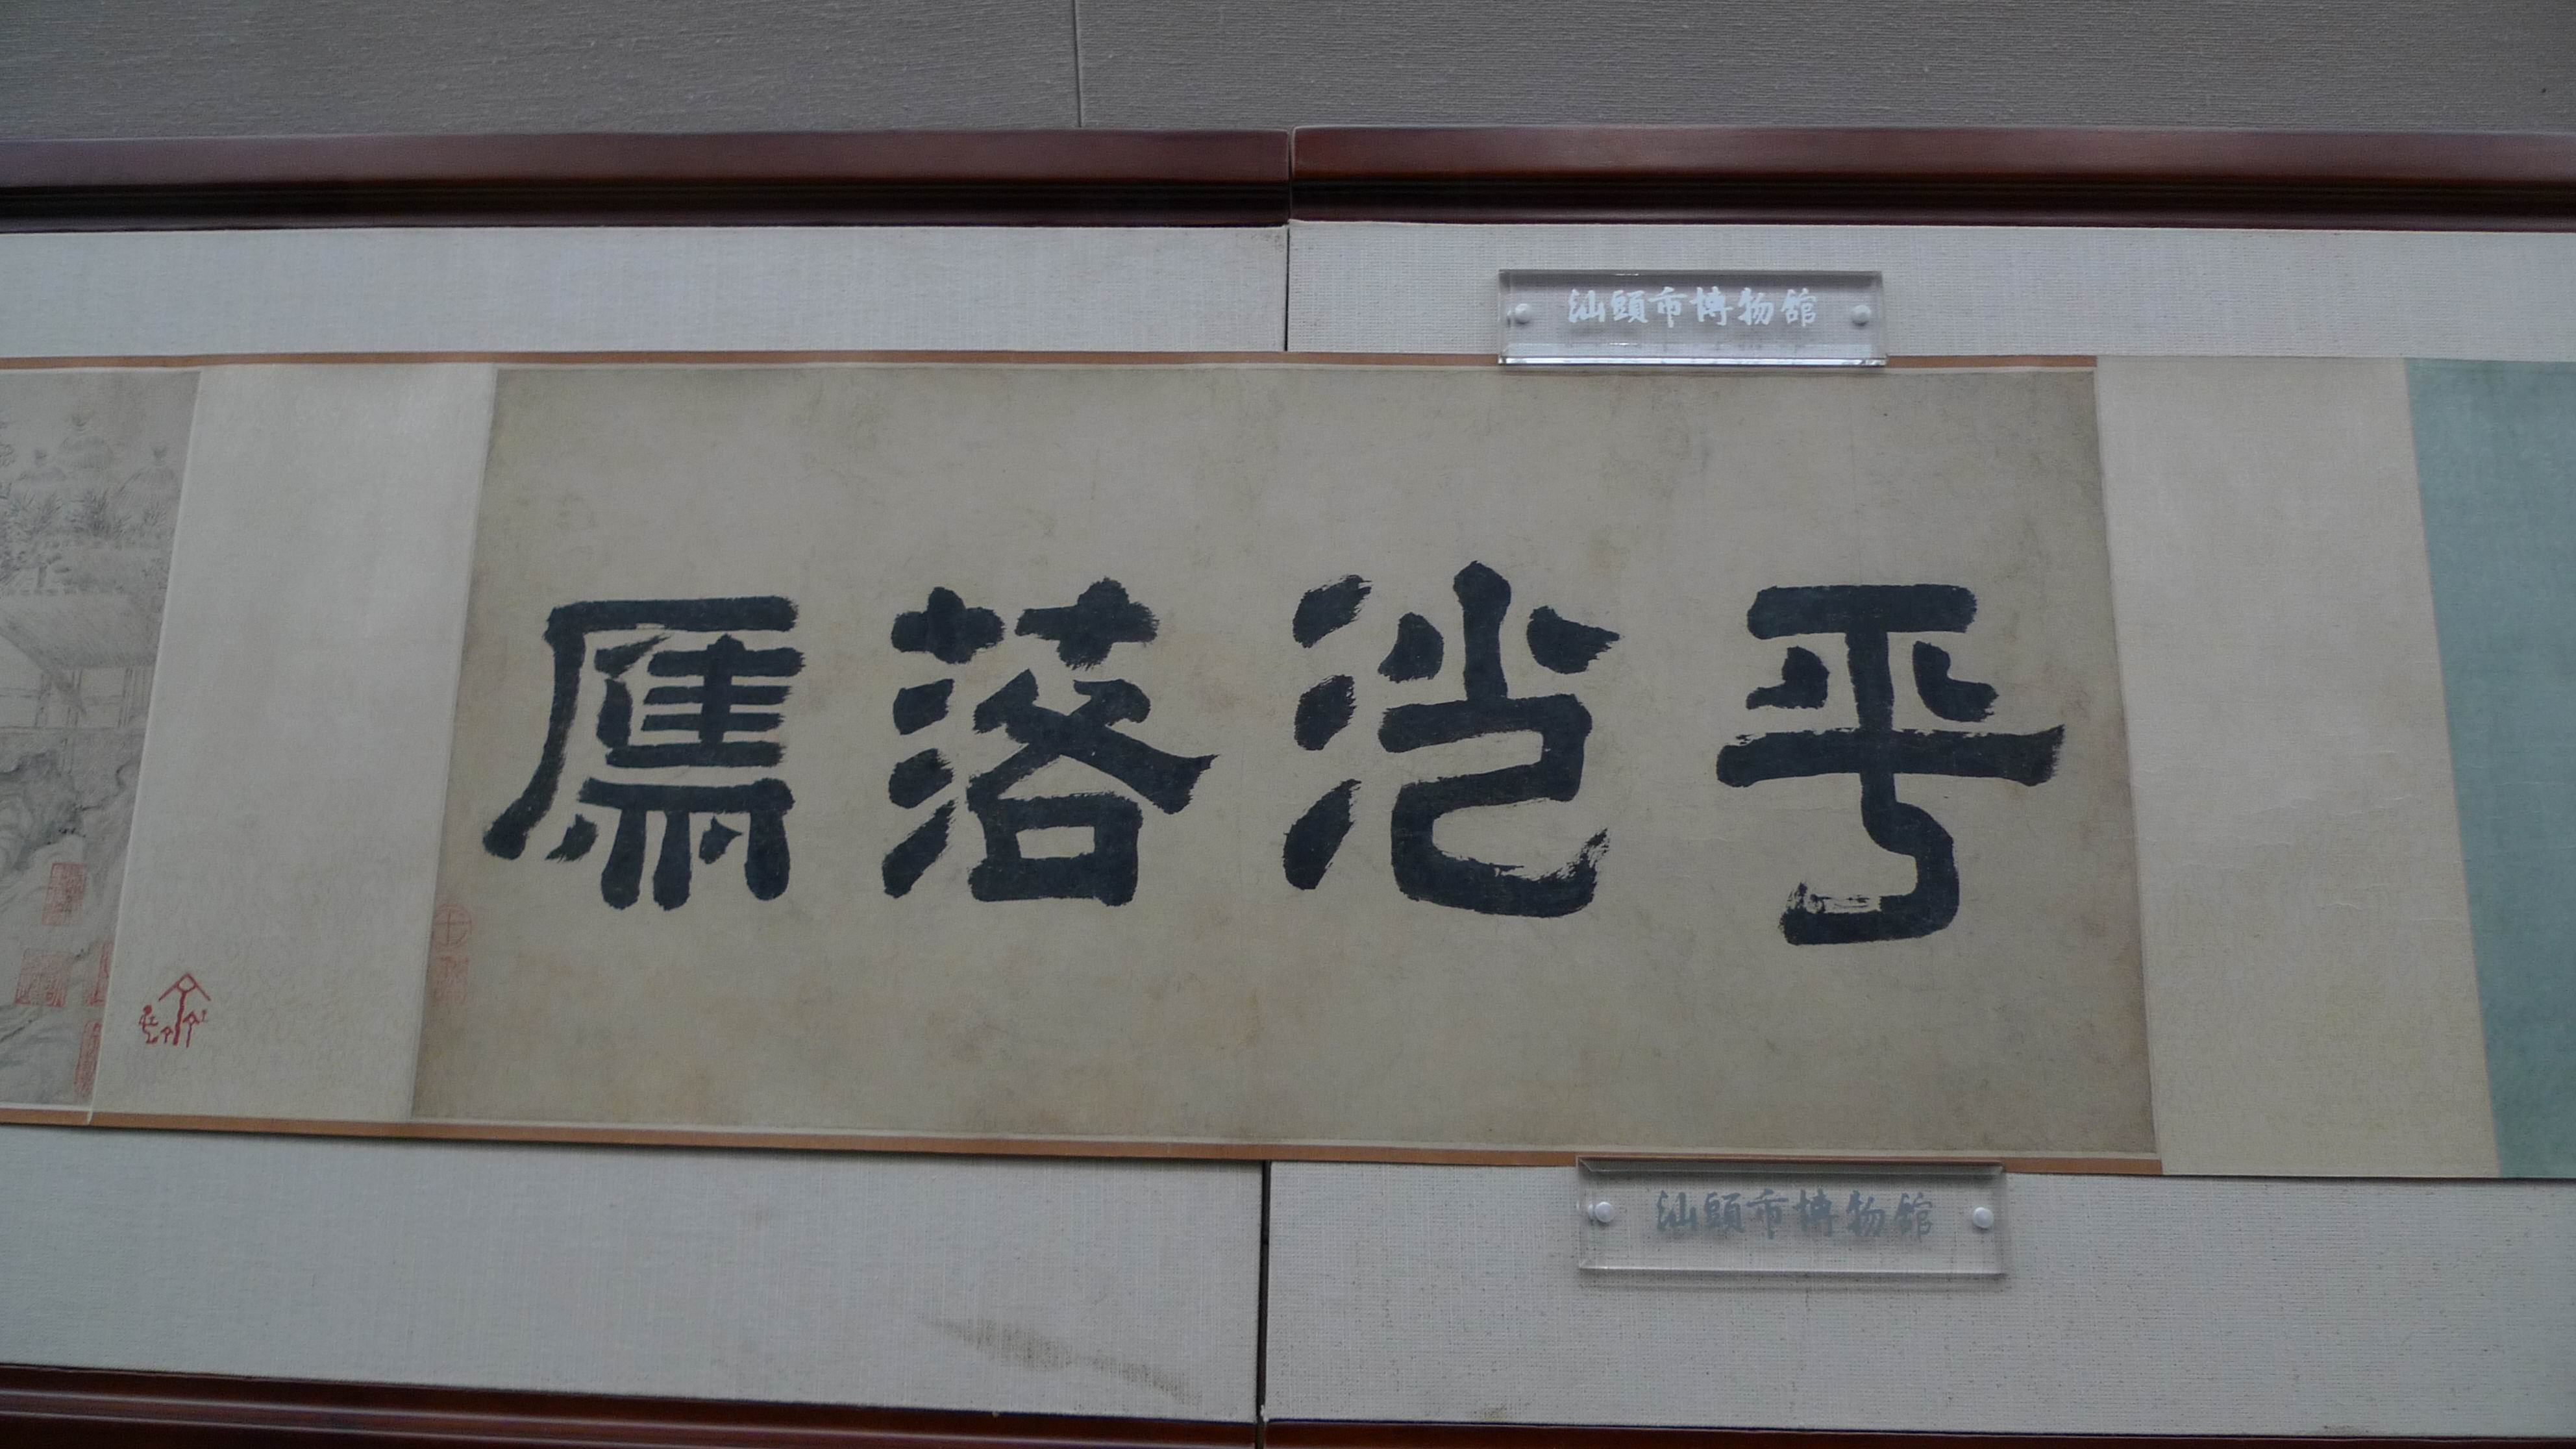 汕頭市博物館
平沙落鴈
汕頭市博物館